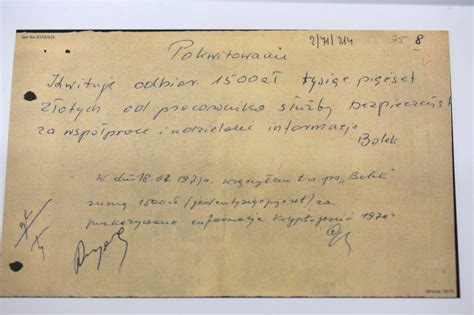 2/71/214 75 8
Pokwitowanie
Kwituje odbior 1500zł tysiąc pięćset
złotych od pracownika służby bezpieczeńst
za współprace i udzielone informacje
Bolek
W dniu 18.01.1971r. wręczyłem t.w. ps. „Bolek"
sumę 1500zł /jeden tysiąc pięćset/ za
przekazywane informacje grudzień 1970